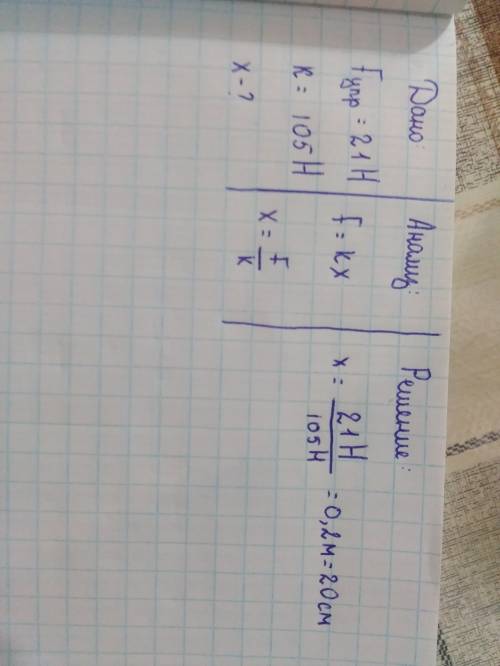 Дано:
Fупр = 21Н
к = 105Н
х - ?
Анализ:
F = kx
x = F/k
Решение:
х = 21Н/105Н = 0,2м = 20см